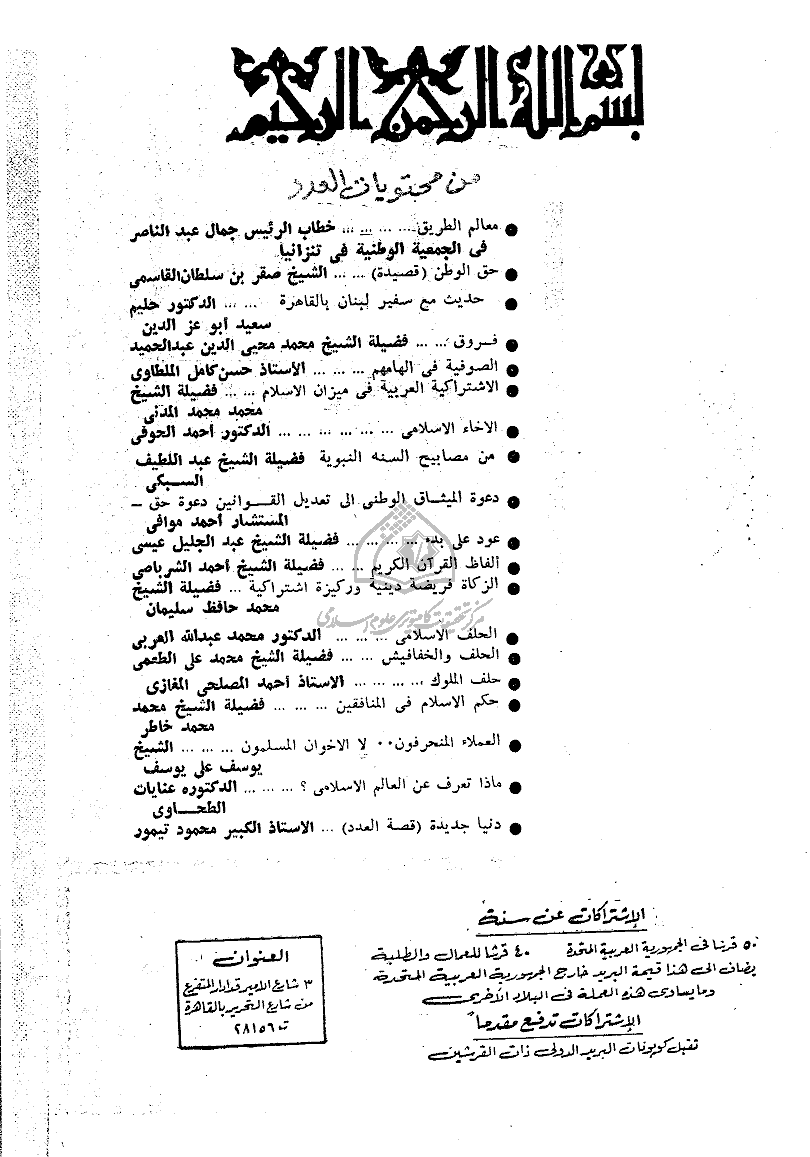 بسم الله الرحمن الرحيم
من محتويات العدد
● معالم الطريق.... ... ... ... خطاب الرئيس جمال عبد الناصر
فى الجمعية الوطنية فى تنزانيا
● حق الوطن (قصيدة) ... ... الشيخ صقر بن سلطان القاسمى
● حديث مع سفير لبنان بالقاهرة ... ... الدكتور حليم
سعيد أبو عز الدين
● فروق ... ... فضيلة الشيخ محمد محيى الدين عبدالحميد
● الصوفية فى الهامهم ... ... ... الأستاذ حسن كامل الملطاوى
● الاشتراكية العربية فى ميزان الاسلام ... ... فضيلة الشيخ
محمد محمد المدنى
● الاخاء الاسلامى ... ... ... ... ... ... الدكتور أحمد الحوفى
● من مصابيح السنه النبوية فضيلة الشيخ عبد اللطيف
السبكى
● دعوة الميثاق الوطنى الى تعديل القوانين دعوة حق –
المستشار أحمد موافى
● عود على بدء ... ... ... ... فضيلة الشيخ عبد الجليل عيسى
● ألفاظ القرآن الكريم ... ... فضيلة الشيخ أحمد الشرباصى
● الزكاة فريضة دينية وركيزة اشتراكية ... فضيلة الشيخ
محمد حافظ سليمان
مركز تحقيقات كامپيوترى علوم اسلامى
● الحلف الاسلامى ... ... ... الدكتور محمد عبدالله العربى
● الحلف والخفافيش ... ... فضيلة الشيخ محمد على الطعمى
● حلف الملوك ... ... ... ... الاستاذ أحمد المصلحى المغازى
● حكم الاسلام فى المنافقين ... ... ... فضيلة الشيخ محمد
محمد خاطر
● العملاء المنحرفون ٠٠ لا الاخوان المسلمون ... ... ... الشيخ
يوسف على يوسف
● ماذا تعرف عن العالم الاسلامى ؟ ... ... ... الدكتوره عنايات
الطحاوى
● دنيا جديدة (قصة العدد) ... الاستاذ الكبير محمود تيمور
الإشتراكات عن سنة
٥٠ قرشا فى الجمهورية العربية المتحدة ٤٠ قرشا للعمال والطلبة
يضاف الى هذا قيمة البريد خارج الجمهورية العربية المتحدة
وما يساوى هذه العملة فى البلاد الأخرى
الإشتراكات تدفع مقدماً
تقبل كوبونات البريد الدولى ذات القرشين
العنوان
٣ شارع الأمير قدادار المتفرع
من شارع التحرير بالقاهرة
ت ٢٨١٥٦